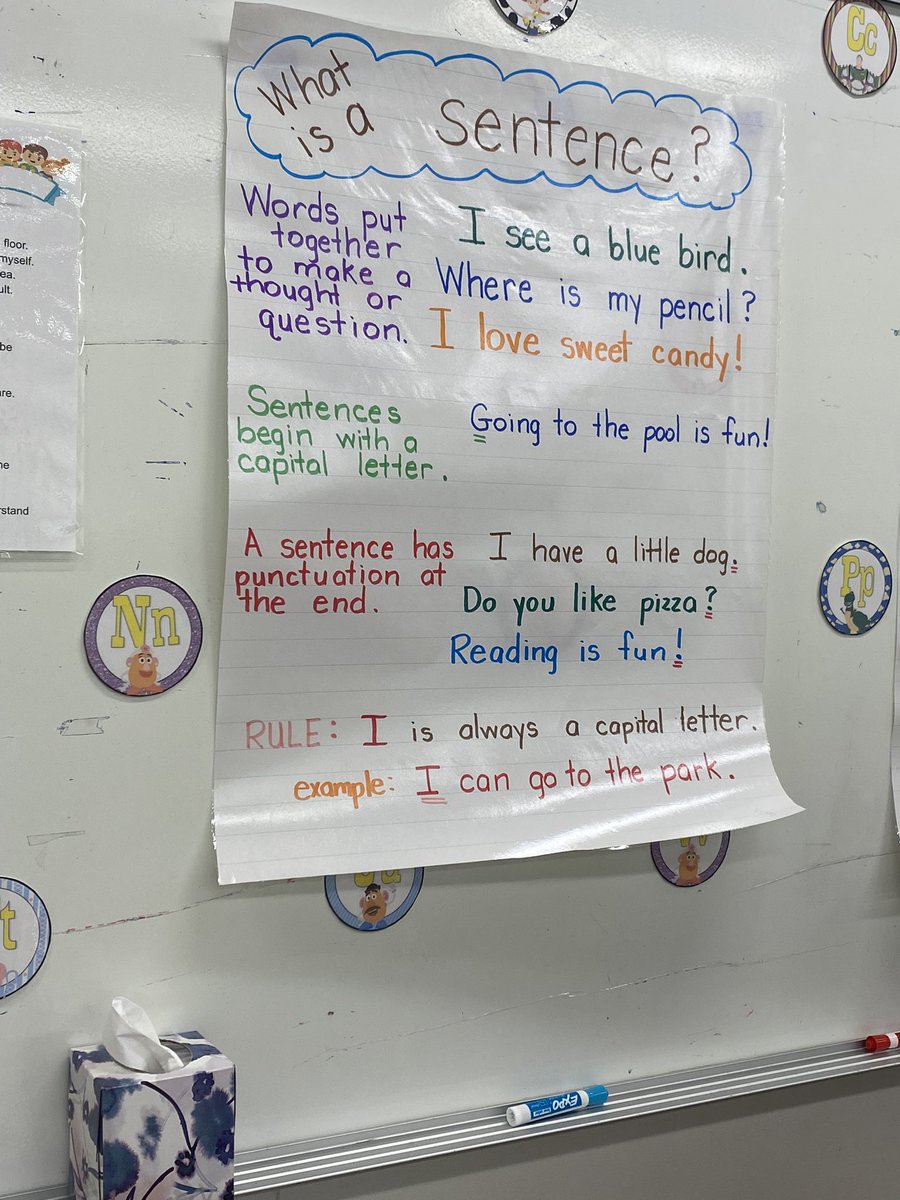 What
is a
Sentence?
Words put
together
to make a
thought or
question.
I see a blue bird.
Where is my pencil?
I love sweet candy!
Sentences
begin with a
capital letter.
Going to the pool is fun!
A sentence has
punctuation at
the end.
I have a little dog.
Do you like pizza?
Reading is fun!
RULE: I is always a capital letter.
example: I can go to the park.
floor.
myself.
be
Cc
Nn
Pp
EXPO